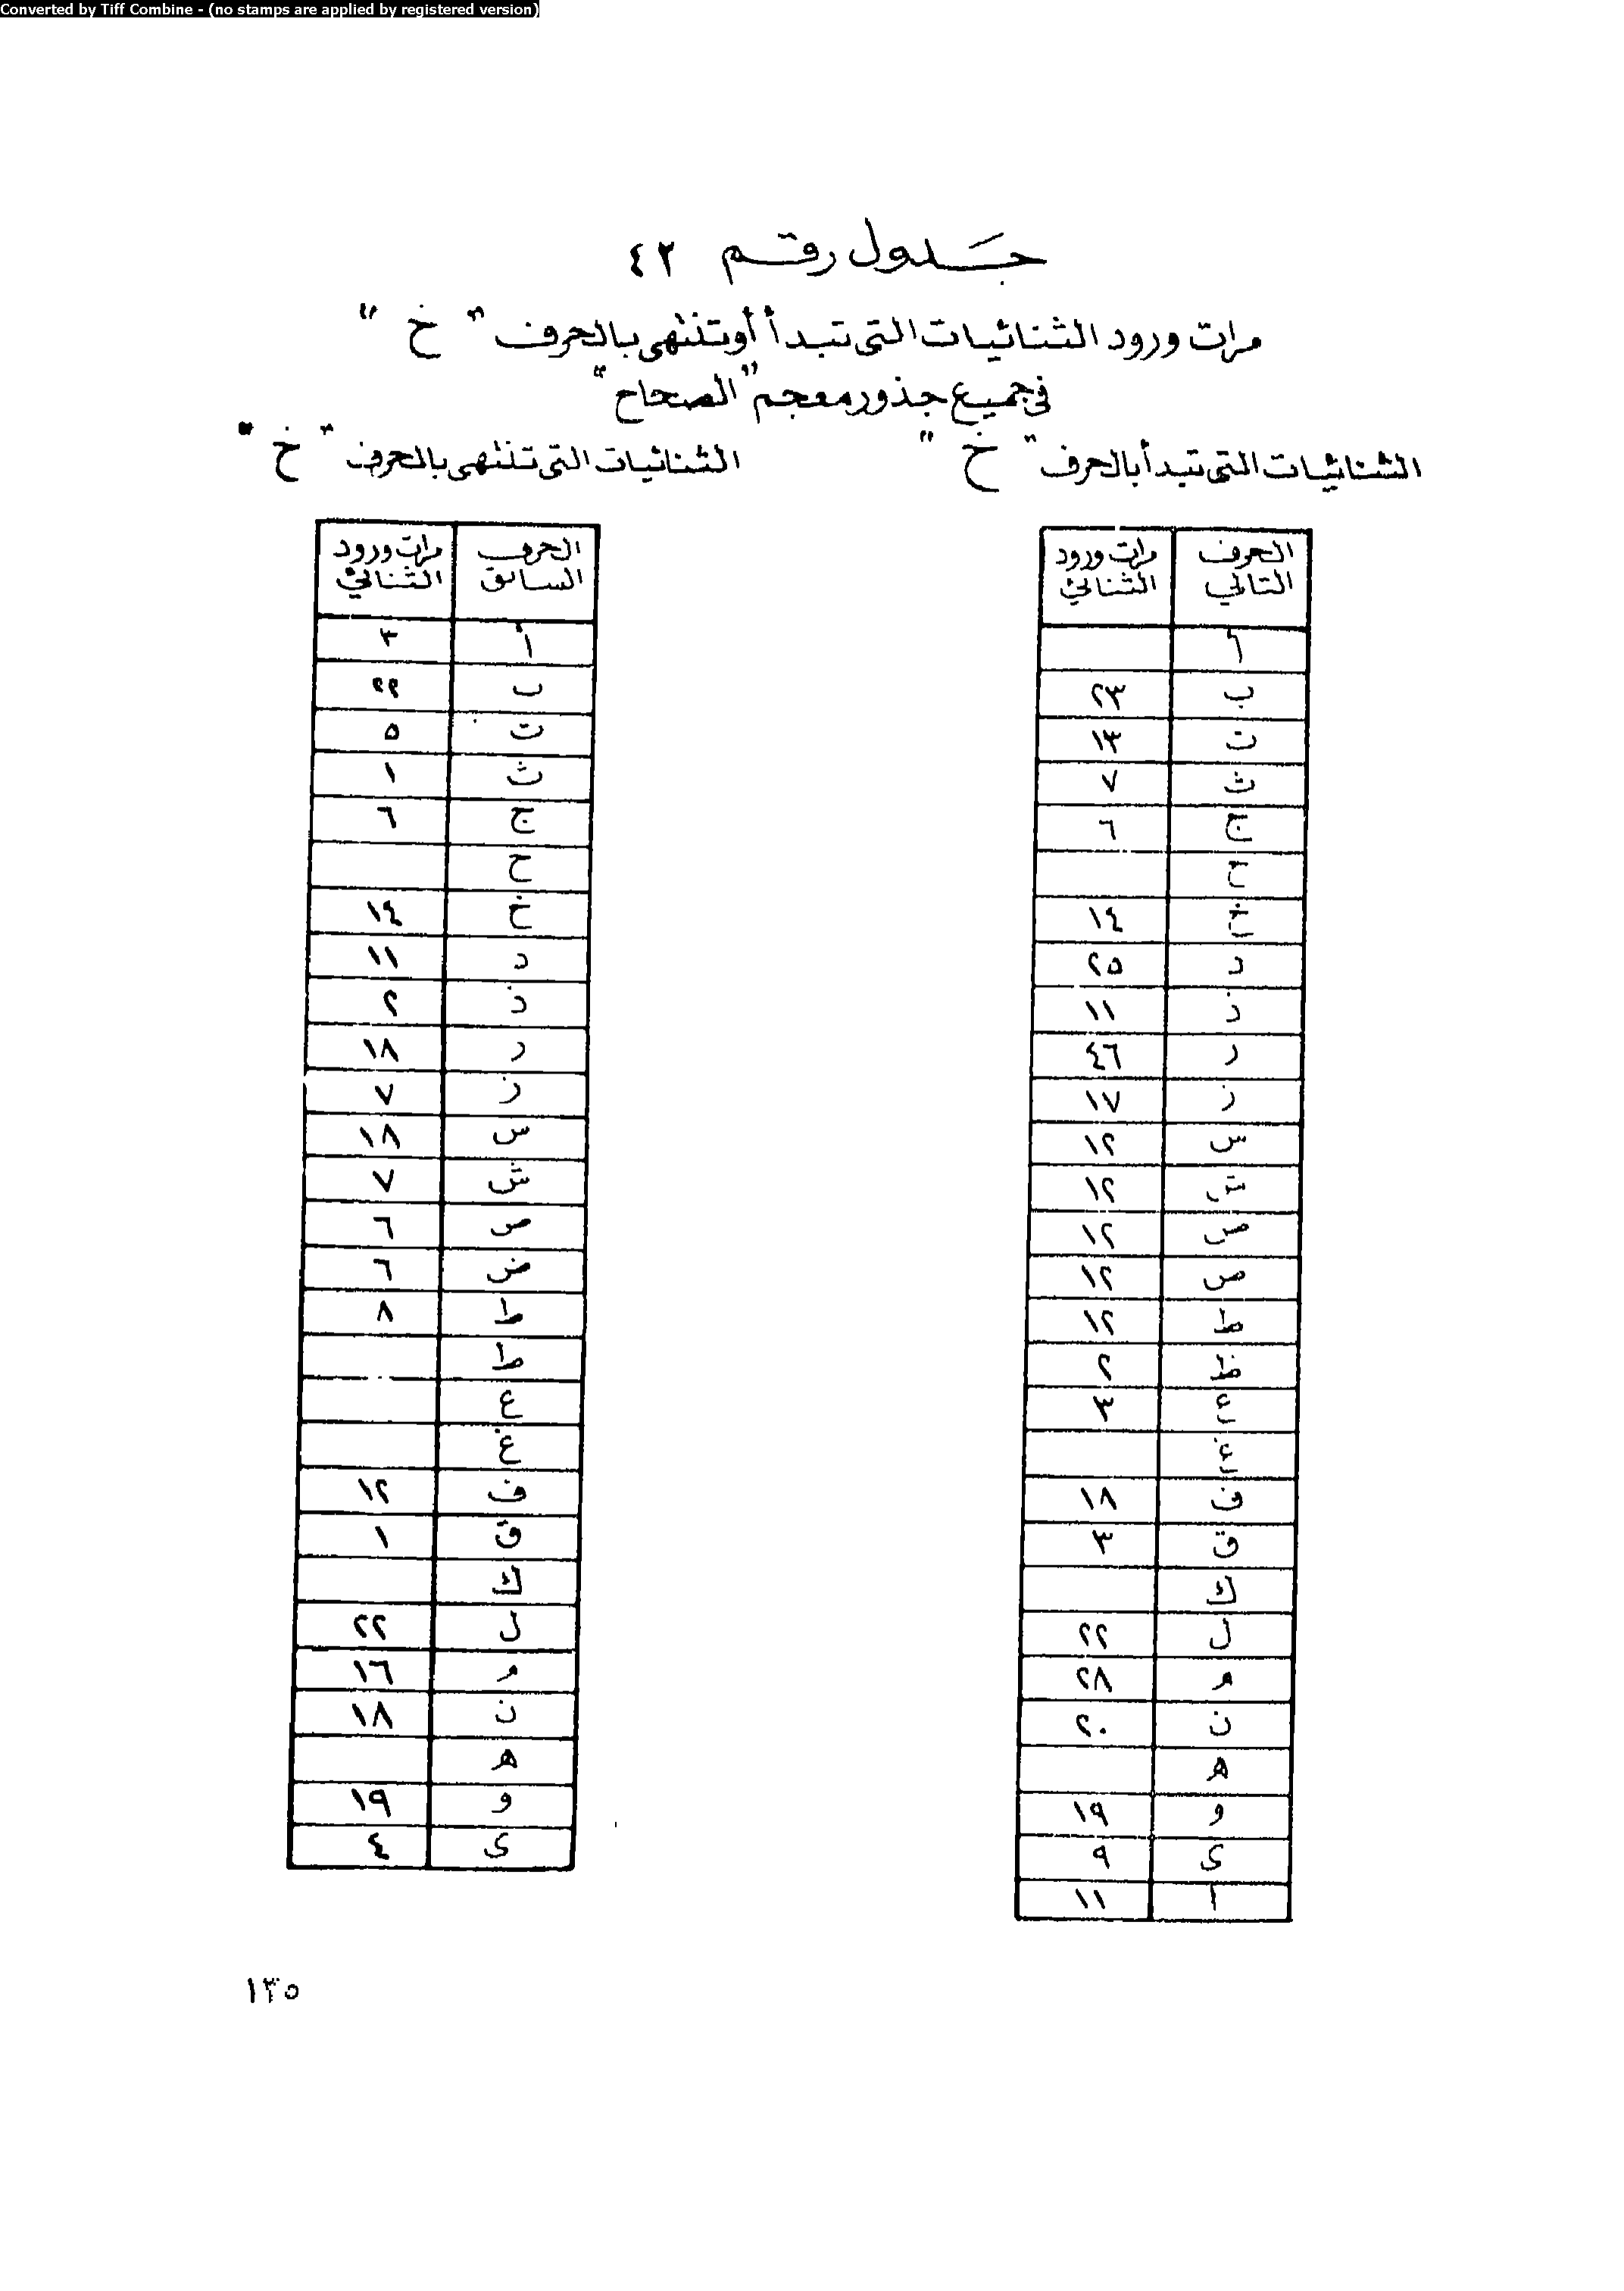 Converted by Tiff Combine - (no stamps are applied by registered version)
جدول رقم ٤٢
مرات ورود الثنائيات التى تبدأ أو تنتهى بالحرف " خ "
فى جميع جذور معجم "الصحاح"
الثنائيات التى تبدأ بالحرف " خ "
الحرف التالي مرات ورود الثنائي
أ
ب ٢٣
ت ١٣
ث ٧
ج ٦
ح
خ ١٤
د ٢٥
ذ ١١
ر ٤٦
ز ١٧
س ١٢
ش ١٢
ص ١٢
ص ١٢
ط ١٢
ظ ٢
ع ٣
غ
ف ١٨
ق ٣
ك
ل ٢٢
م ٢٨
ن ٢٠
ه
و ١٩
ى ٩
ا ١١
الثنائيات التى تنتهى بالحرف " خ "
الحرف السابق مرات ورود الثنائي
أ ٣
ب ٢٢
ت ٥
ث ١
ج ٦
ح
خ ١٤
د ١١
ذ ٢
ر ١٨
ز ٧
س ١٨
ش ٧
ص ٦
ض ٦
ط ٨
ط
ع
غ
ف ١٢
ق ١
ك
ل ٢٢
م ١٦
ن ١٨
ه
و ١٩
ى ٤
١٣٥